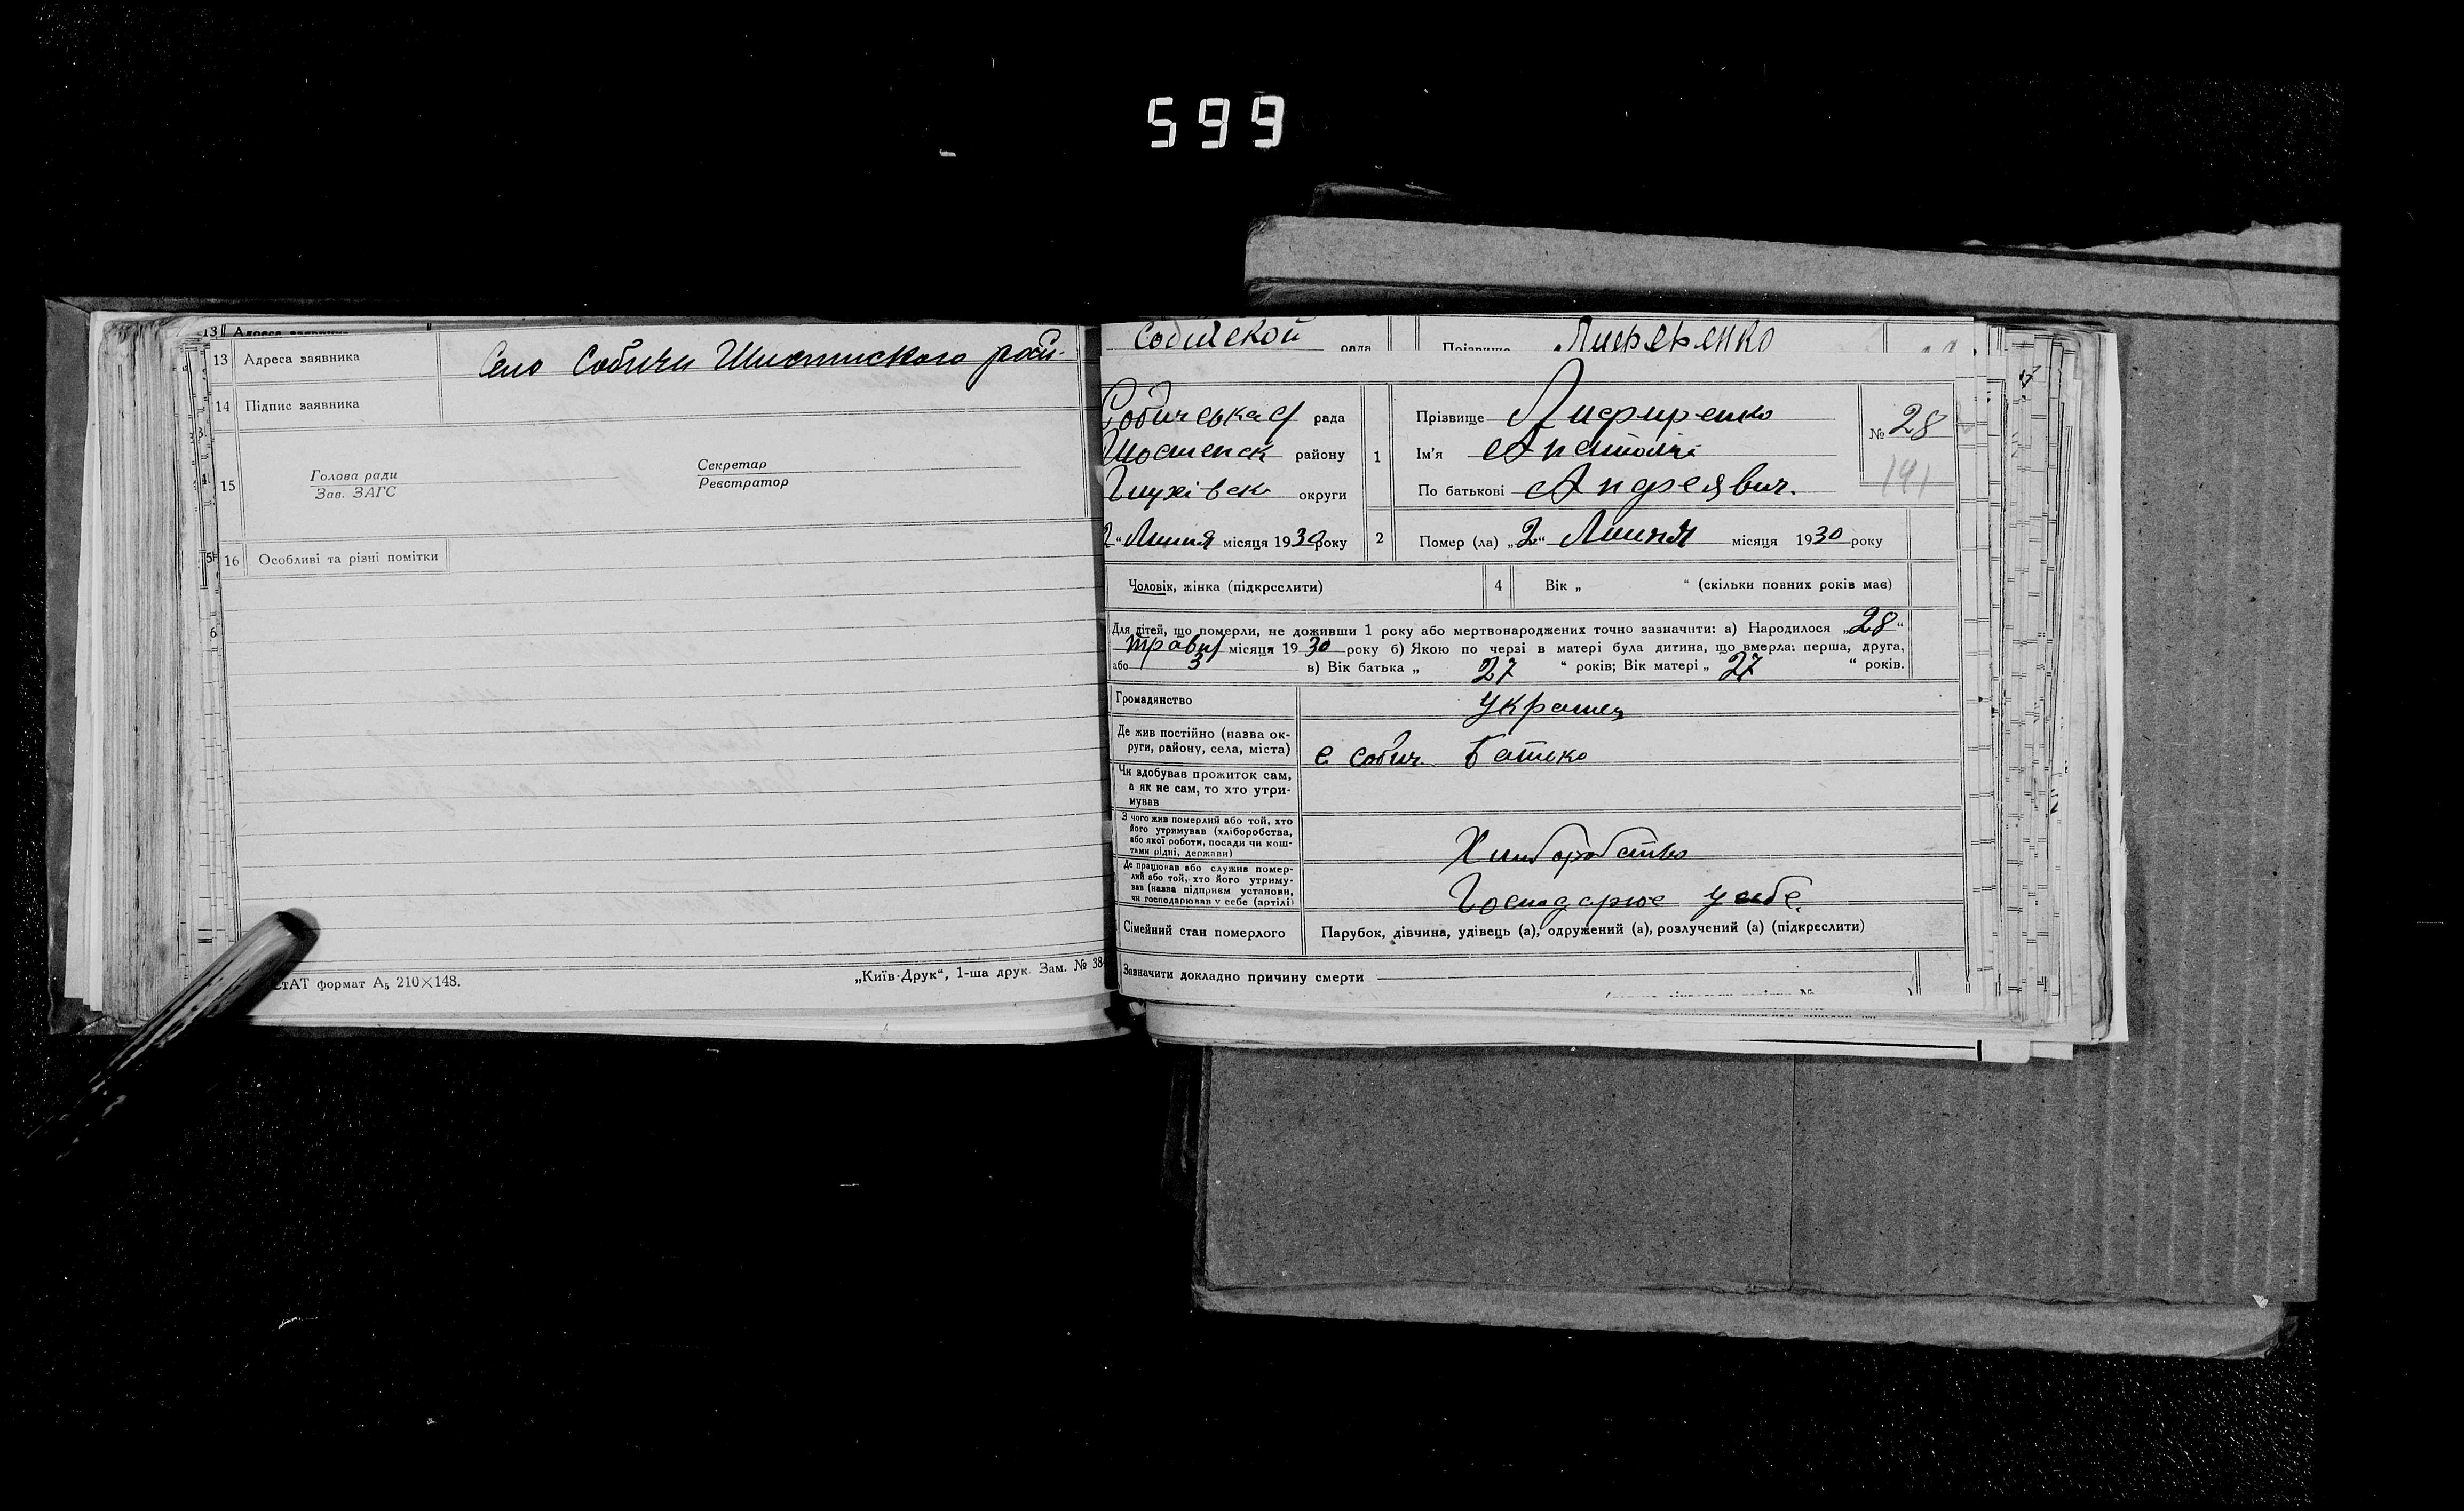 599
13 Адреса заявника Село Собичи Шостинского рай-
14 Підпис заявника
15 Голова ради Секретар
Зав. ЗАГС Реєстратор
16 Особливі та різні помітки
СтАТ формат А₅ 210×148. „Київ-Друк“, 1-ша друк. Зам. № 38
рада Прізвище
Собичська рада 1 Прізвище Лифиренко № 28
Шостенск району Ім'я Анатолій
Глухівск округи По батькові Андреявич. 141
2 “ Липня місяця 1930 року 2 Помер (ла) „2“ Липня місяця 1930 року
Чоловік, жінка (підкреслити) 4 Вік „ “ (скільки повних років має)
Для дітей, що померли, не доживши 1 року або мертвонароджених точно зазначити: а) Народилося „28“
травня місяця 1930 року б) Якою по черзі в матері була дитина, що вмерла; перша, друга,
або 3 в) Вік батька „ 27 “ років; Вік матері „ 27 “ років.
Громадянство Украінец
Де жив постійно (назва ок-
руги, району, села, міста) с Собич Батько
Чи здобував прожиток сам,
а як не сам, то хто утри-
мував
З чого жив померлий або той, хто
його утримував (хліборобства,
або якої роботи, посади чи кош-
тами рідні, держави) Хлиборобство
Де працював або служив помер-
лий або той, хто його утриму-
вав (назва підприєм установи,
чи господарював у себе (артілі) Господарює у себе.
Сімейний стан померлого Парубок, дівчина, удівець (а), одружений (а), розлучений (а) (підкреслити)
Зазначити докладно причину смерти